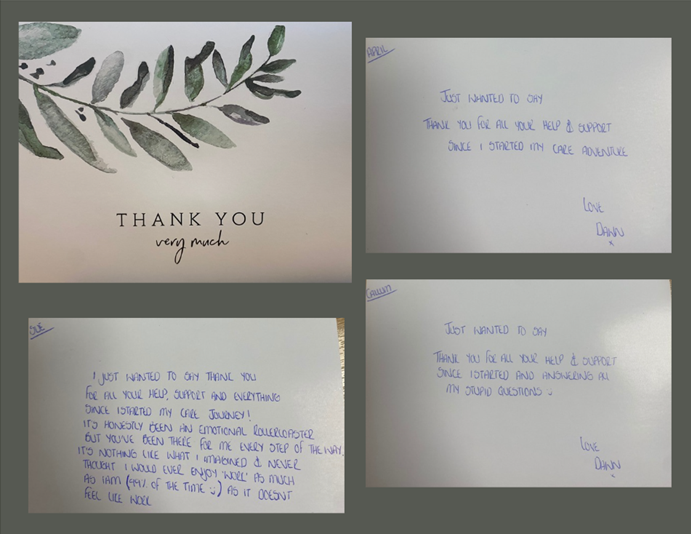 THANK YOU
very much
APRIL
JUST WANTED TO SAY
THANK YOU FOR ALL YOUR HELP & SUPPORT
SINCE I STARTED MY CARE ADVENTURE
LOVE
DAWN
x
SUE
I JUST WANTED TO SAY THANK YOU
FOR ALL YOUR HELP, SUPPORT AND EVERYTHING
SINCE I STARTED MY CARE JOURNEY!
IT'S HONESTLY BEEN AN EMOTIONAL ROLLERCOASTER
BUT YOU'VE BEEN THERE FOR ME EVERY STEP OF THE WAY.
IT'S NOTHING LIKE WHAT I IMAGINED & NEVER
THOUGHT I WOULD EVER ENJOY 'WORK' AS MUCH
AS I AM (99% OF THE TIME :)) AS IT DOESN'T
FEEL LIKE WORK
CALLUM
JUST WANTED TO SAY
THANK YOU FOR ALL YOUR HELP & SUPPORT
SINCE I STARTED AND ANSWERING ALL
MY STUPID QUESTIONS :)
LOVE
DAWN
x